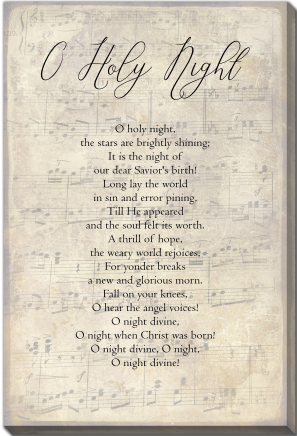 O Holy Night
O holy night,
the stars are brightly shining;
It is the night of
our dear Savior's birth!
Long lay the world
in sin and error pining,
Till He appeared
and the soul felt its worth.
A thrill of hope,
the weary world rejoices,
For yonder breaks
a new and glorious morn.
Fall on your knees,
O hear the angel voices!
O night divine,
O night when Christ was born?
O night divine, O night,
O night divine!